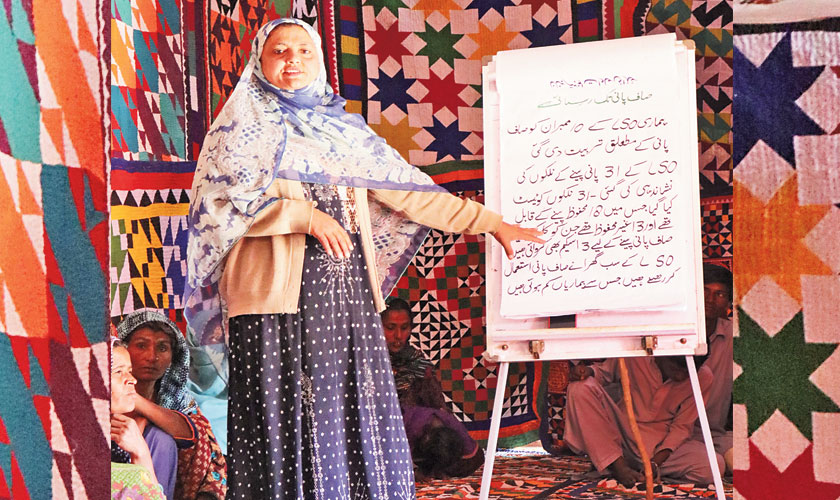 صاف پانی تک رسائی
ہماری LSO کے 10 ممبران کو صاف
پانی کے متعلق تربیت دی گئی
LSO کے 31 پانی پینے کے نلکوں کی
نشاندہی کی گئی - 31 نلکوں کو ٹیسٹ
کیا گیا جس میں 18 محفوظ پینے کے قابل
تھے اور 13 غیر محفوظ تھے جن کو
صاف پانی پینے کے لیے 3 اسکیم بھی ہیں
LSO کے سب گھرانے صاف پانی استعمال
کر رہے ہیں جس سے بیماریاں کم ہوتی ہیں